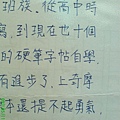 班族。從高中時
寫,到現在也十個
的硬筆字帖自學,
有進步了,上奇摩
本還提不起勇氣,